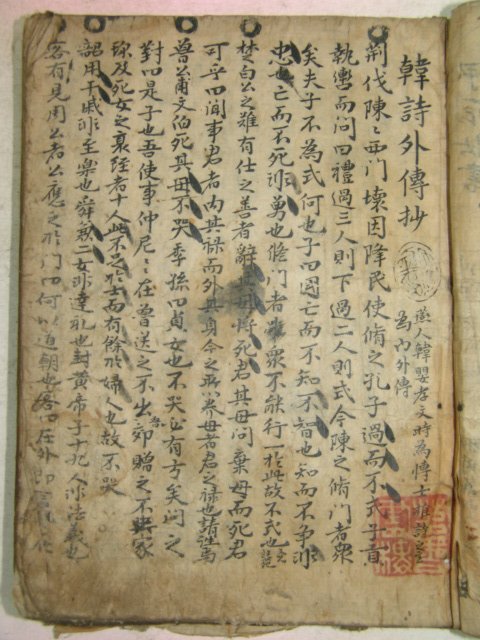 韓詩外傳抄
燕人韓嬰孝文時為博士推詩之意
為內外傳
荆伐陳〻西門壞因降民使脩之孔子過而不式子貢
執轡而問曰禮過三人則下過二人則式今陳之脩門者衆
矣夫子不為式何也子曰國亡而不知不智也知而不争非
忠也亡而不死非勇也脩門者雖衆不能行一於此故不式也
楚白公之難有仕之善者辭其母將死君其母問棄母而死君
可乎曰聞事君者內其祿而外其身今之所以養母者君之祿也請往焉
魯公甫文伯死其母不哭季孫曰貞女也不哭必有方矣問之
對曰是子也吾使事仲尼〻在魯送之不出郊贈之不與家
珍及死女之衰絰者十人此不足於士而有餘於婦人也故不哭
韶用干戚非至樂也舜兼二女非達礼也封黄帝子十九人非法義也
客有見周公者公應之於門曰何以道朝也客曰在外即言